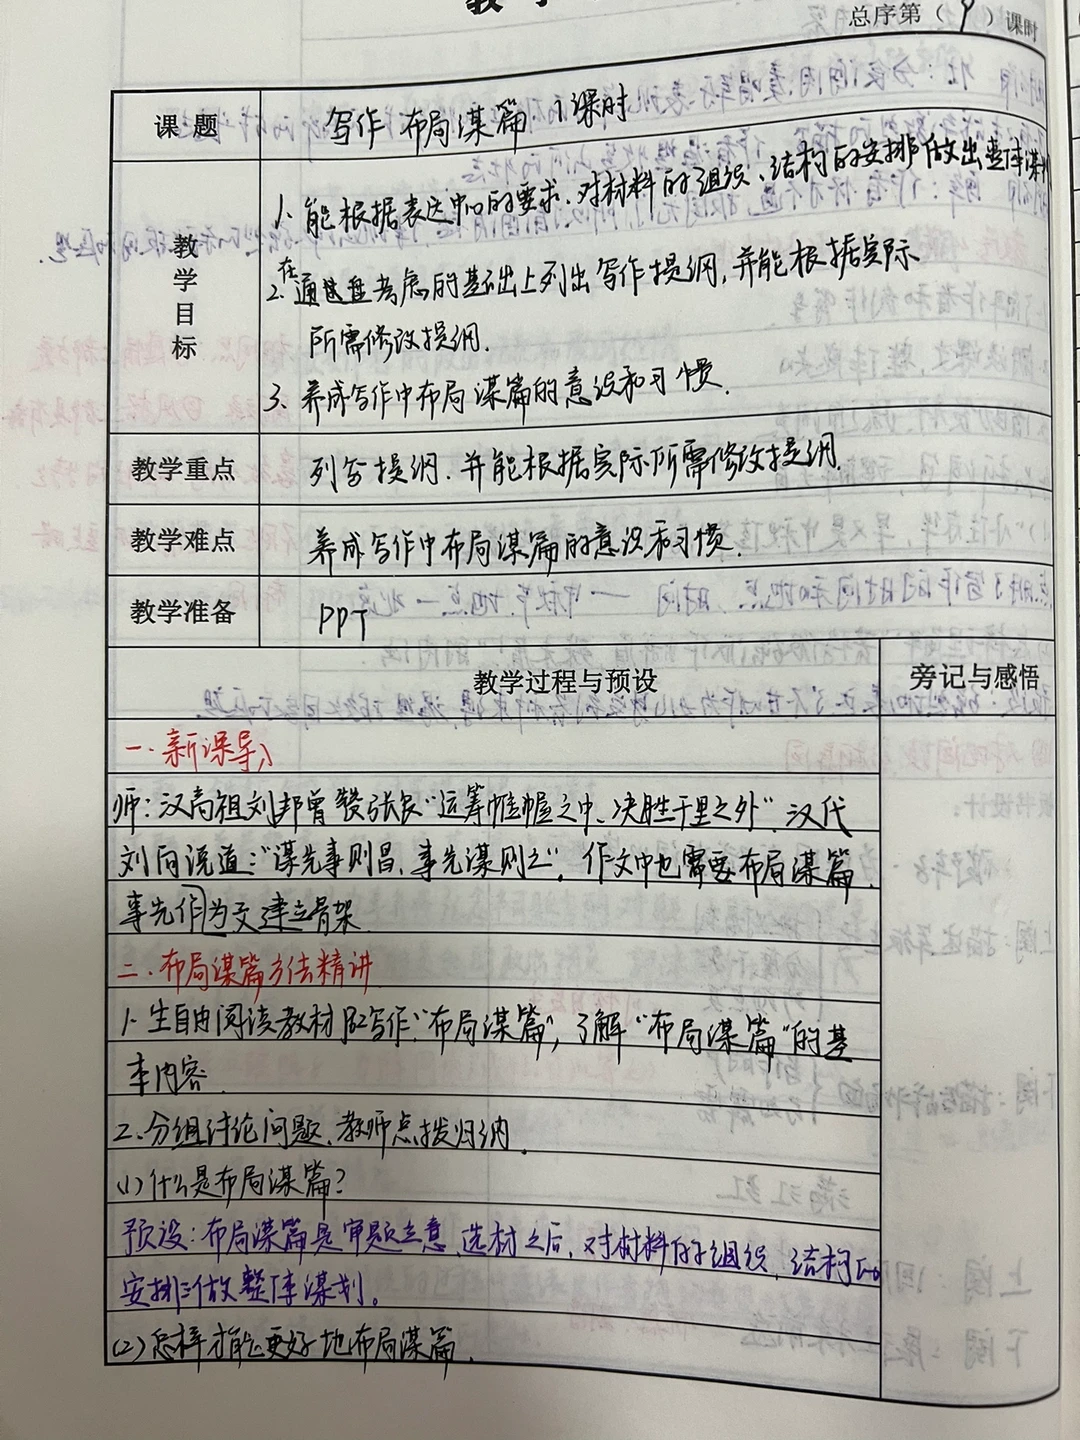 总序第（9）课时
课 题 写作 布局谋篇 1课时
教学目标
1、能根据表达中心的要求、对材料的组织、结构的安排做出整体谋划
2.在通盘考虑的基础上列出写作提纲,并能根据实际
所需修改提纲.
3、养成写作中布局谋篇的意识和习惯.
教学重点 列写提纲.并能根据实际所需修改提纲.
教学难点 养成写作中布局谋篇的意识和习惯.
教学准备 PPT
教学过程与预设 旁记与感悟
一.新课导入
师:汉高祖刘邦曾赞张良“运筹帷幄之中、决胜千里之外”.汉代
刘向说道:“谋先事则昌,事先谋则亡”。作文中也需要布局谋篇.
事先作为文建立骨架.
二.布局谋篇方法精讲
1.生自由阅读教材写作:“布局谋篇”,了解“布局谋篇”的基
本内容.
2.分组讨论问题.教师点拨归纳.
(1)什么是布局谋篇?
预设:布局谋篇是审题立意、选材之后,对材料的组织、结构的
安排做整体谋划。
(2)怎样才能更好地布局谋篇.